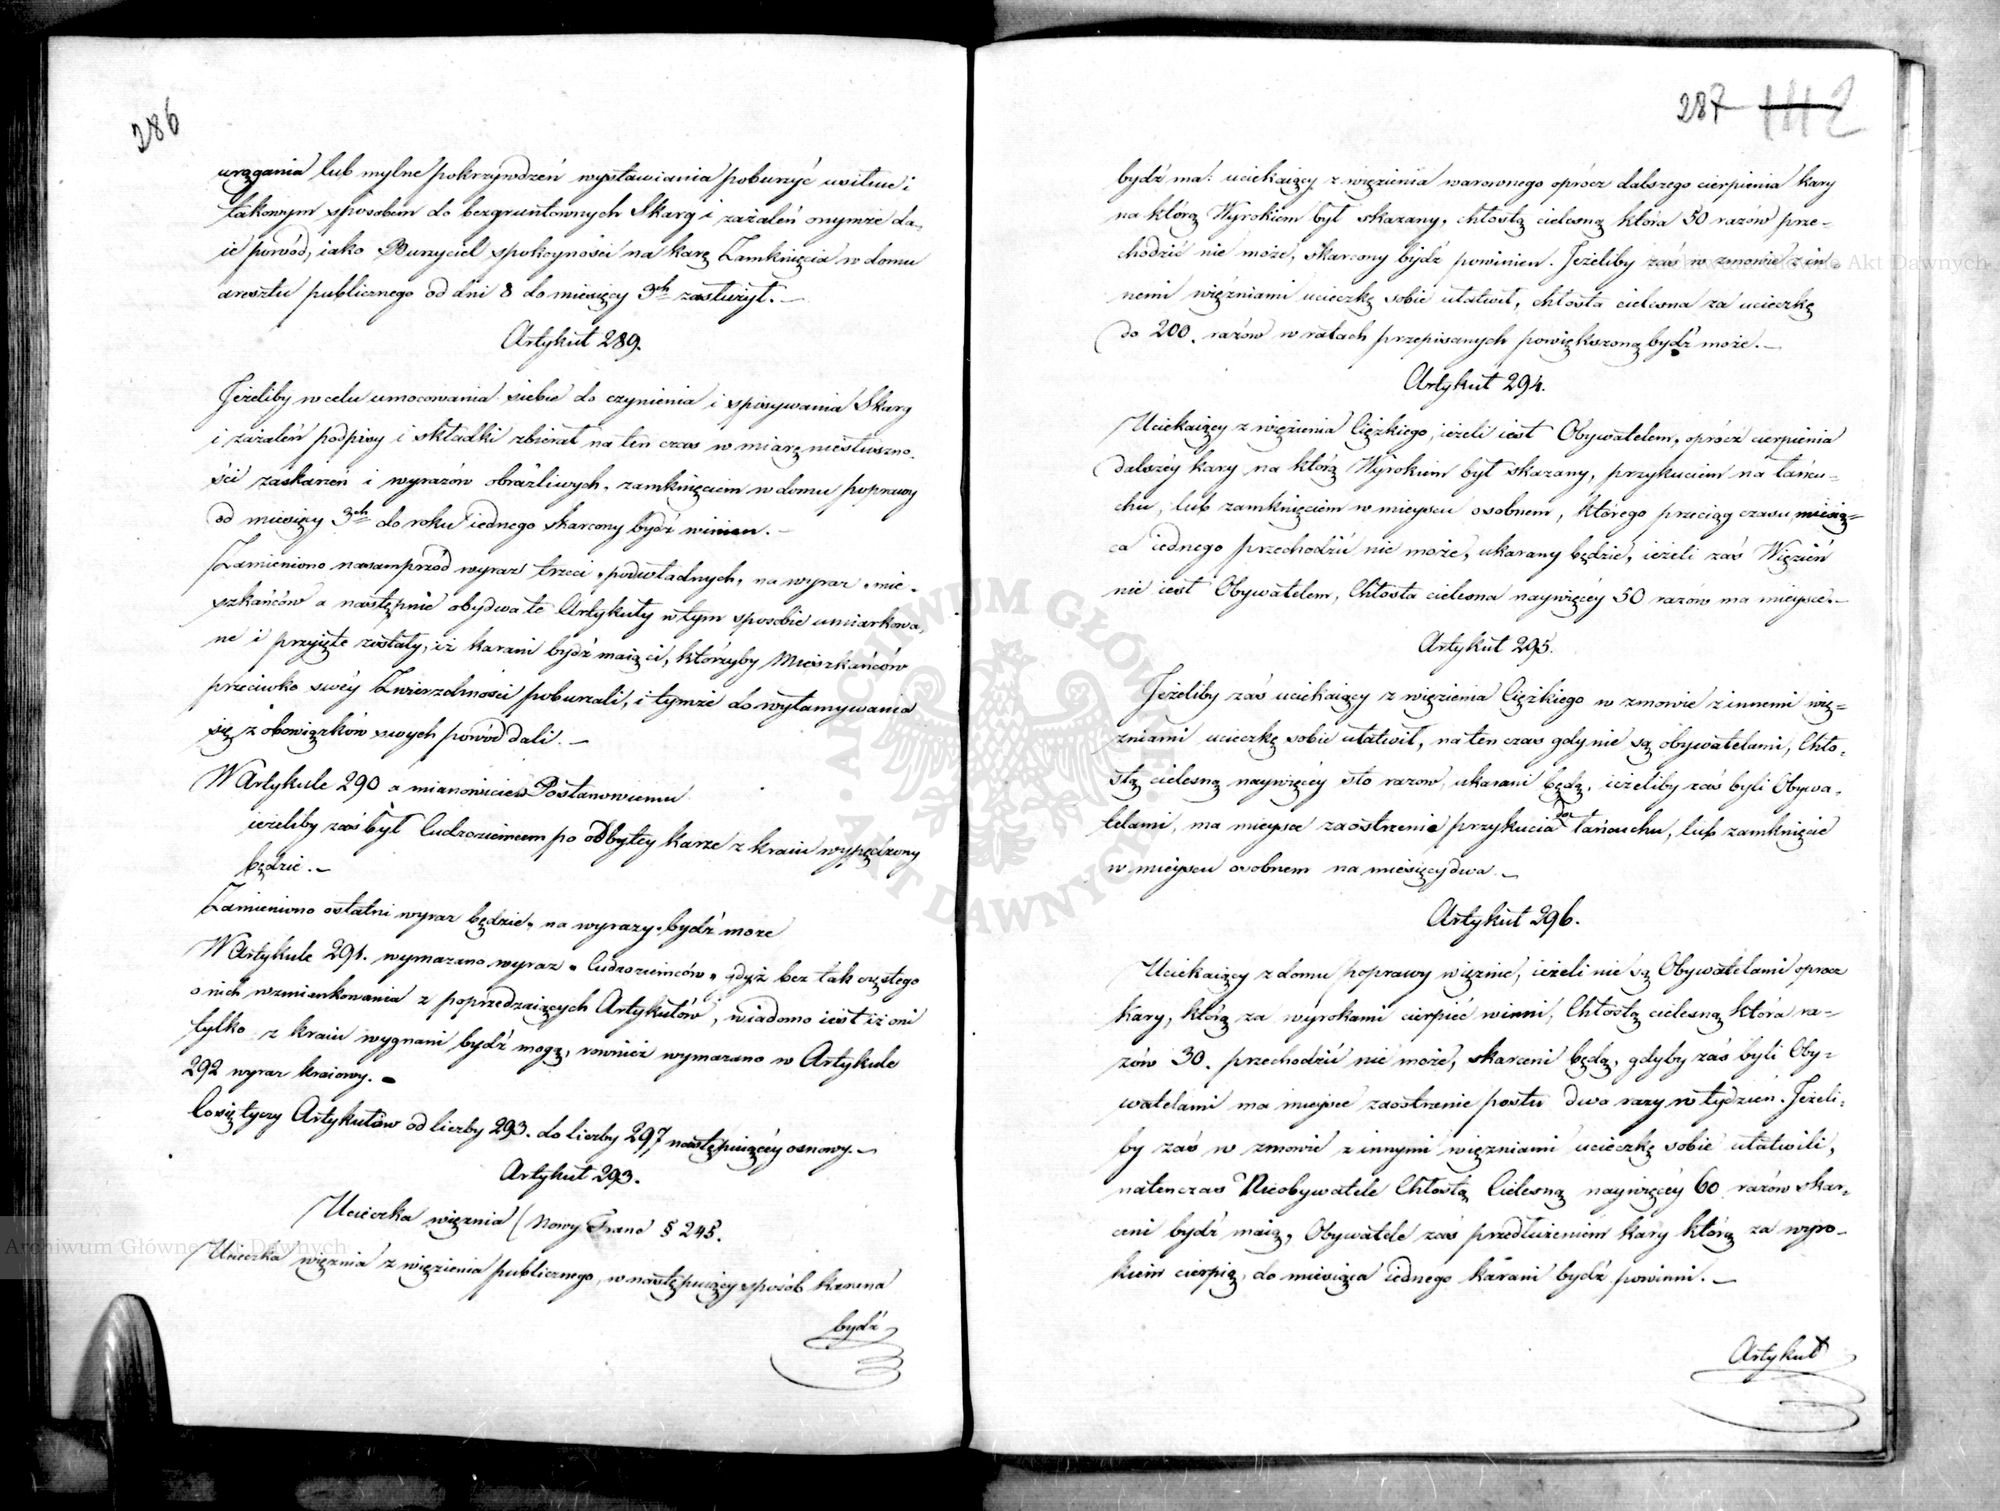 286
urągania lub mylne pokrzywdzeń wystawiania poburzyć usiłuie i
takowym sposobem do bezgruntownych Skarg i zażaleń onymże da„
ie powód, iako Burzyciel spokoyności na karę Zamknięcia w domu
aresztu publicznego od dni 8 do miesięcy 3ch zasłużył. —
Artykuł 289.
Jeżeliby w celu umocowania siebie do czynienia i spisywania Skarg
i zażaleń podpisy i składki zbierał na ten czas w miarę niesłuszno„
ści zaskarzeń i wyrazów obraźliwych, zamknięciem w domu poprawy
od miesięcy 3ch do roku iednego skarcony bydź winien. —
Zamieniono naasamprzód wyraz trzeci „podwładnych„ na wyraz „mie„
szkańców a następnie obydwa te Artykuły w tym sposobie umiarkowa„
ne i przyięte zostały, iż karani bydź maią ci, którzyby Mieszkańców
przeciwko swéy Zwierzchności poburzali, i tymże do wyłamywania
się z obowiązków swych powód dali. —
W Artykule 290 a mianowicie w Postanowieniu
ieżeliby zaś był Cudzoziemcem po odbytey karze z kraiu wypędzony
będzie. —
Zamieniono ostatni wyraz będzie, na wyrazy „bydź może
W Artykule 291. wymazano wyraz „Cudzoziemców„ gdyż bez tak częstego
o nich wzmiankowania z poprzedzaiących Artykułów, wiadomo iest iż oni
tylko z kraiu wygnani bydź mogą, rownież wymazano w Artykule
292 wyraz kraiowy. —
Co się tyczy Artykułów od liczby 293. do liczby 297 następuiącéy osnowy. —
Artykuł 293.
Ucieczka więznia (Nowy Franc § 245.
Ucieczka więznia z więzienia publicznego, w następuiący sposób karana
bydź
287 1112
bydź ma: uciekaiący z więzienia warownego oprócz dalszego cierpienia kary
na którą Wyrokiem był skazany, chłostą cielesną która 50 razów prze„
chodzić nie może, skarcony bydź powinien. Jeżeliby zaś w zmowie z in„
nemi więzniami ucieczkę sobie ułatwił, chłosta cielesna za ucieczkę
do 200. razów w ratach przepisanych powiększoną bydź może. —
Artykuł 294.
Uciekaiący z więzienia Ciężkiego, ieżeli iest Obywatelem, oprócz cierpienia
dalszéy kary na którą Wyrokiem był skazany, przykuciem na łańcu„
chu, lub zamknięciem w mieyscu osobnem, którego przeciąg czasu miesią=
ca iednego przechodzić nie może, ukarany będzie, ieżeli zaś Więzień
nie iest Obywatelem, Chłosta cielesna naywięcéy 50 razów ma mieysce. —
Artykuł 295.
Jeżeliby zaś uciekaiący z więzienia Ciężkiego w zmowie z innemi wię=
zniami ucieczkę sobie ułatwił, na ten czas gdy nie są obywatelami, Chło„
stą cielesną naywięcéy sto razow, ukarani będą, ieżeliby zaś byli Obywa„
telami, ma mieysce zaostrzenie przykucia do łańcuchu, lub zamknięcie
w mieyscu osobnem na miesięcy dwa. —
Artykuł 296.
Uciekaiący z domu poprawy więznie, ieżeli nie są Obywatelami oprocz
kary, którą za wyrokami cierpieć winni, Chłostą cielesną która ra=
zów 30. przechodzić nie może, skarceni będą, gdyby zaś byli Oby=
watelami ma mieysce zaostrzenie postu dwa razy w tydzień. Jeżeli=
by zaś w zmowie z innymi więzniami ucieczkę sobie ułatwili,
natenczas Nieobywatele Chłostą Cielesną naywięcéy 60 razów skar„
ceni bydź maią, Obywatele zaś przedłużeniem kary którą za wyro„
kiem cierpią, do miesiąca iednego karani bydź powinni. —
Artykuł
ARCHIWUM GŁÓWNE AKT DAWNYCH
Archiwum Główne Akt Dawnych
Archiwum Główne Akt Dawnych